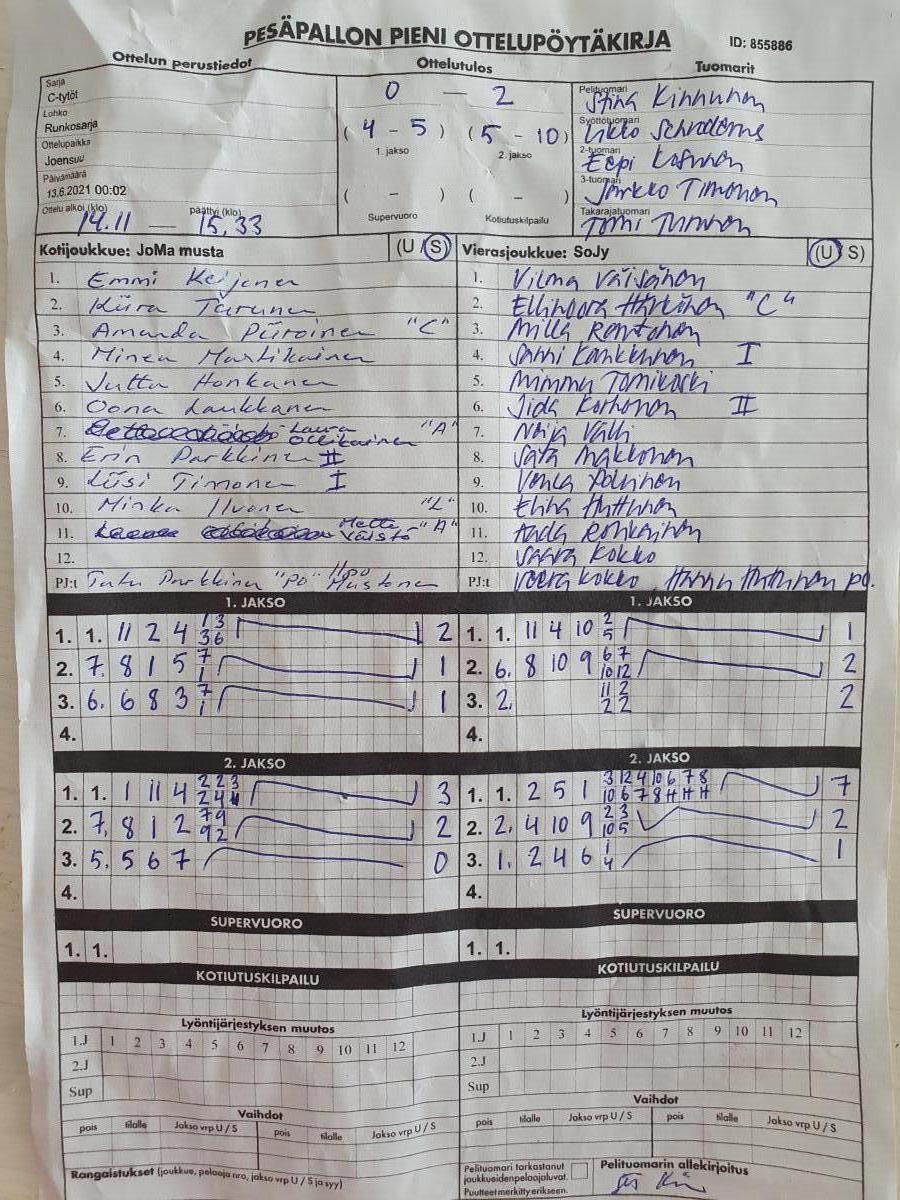 PESÄPALLON PIENI OTTELUPÖYTÄKIRJA
ID: 855886
Ottelun perustiedot
Sarja
C-tytöt
Lohko
Runkosarja
Ottelupaikka
Joensuu
Päivämäärä
13.6.2021 00:02
Ottelu alkoi (klo) päättyi (klo)
14.11 — 15,33
Ottelutulos
0 — 2
(4 - 5) (5 - 10)
1. jakso 2. jakso
( - ) ( - )
Supervuoro Kotiutuskilpailu
Tuomarit
Pelituomari
Stina Kinnunen
Syöttötuomari
Ukko
2-tuomari
Eepi
3-tuomari
Jarkko Timonen
Takarajatuomari
Tomi
Kotijoukkue: JoMa musta (U S)
1. Emmi Keijonen
2. Kiira Turunen
3. Amanda Piiroinen "C"
4. Minea Martikainen
5. Jutta Honkanen
6. Oona Laukkanen
7. Laura Ollikainen "A"
8. Erin Parkkinen II
9. Liisi Timonen I
10. Minka Ilvonen "L"
11. Mette Väistö "A"
12.
PJ:t Tatu Parkkinen "PO" Ilpo Mustonen
Vierasjoukkue: SoJy (U S)
1. Vilma Väisänen
2. Ellinoora "C"
3. Milla Rantonen
4. Sanni Kankkunen I
5. Mimmu Tomikoski
6. Jida Korhonen II
7. Naja Valli
8. Sara Makkonen
9. Venla
10. Elina Huttunen
11. Aada Ronkainen
12. Saara Kokko
PJ:t Veera Kokko Huttunen po.
1. JAKSO
1. 1. 11 2 4 1 3 2
3 6
2. 7. 8 1 5 7 1
1
3. 6. 6 8 3 7 1
1
4.
1. JAKSO
1. 1. 11 4 10 2 1
5
2. 6. 8 10 9 6 7 2
10 12
3. 2. 11 2 2
2 2
4.
2. JAKSO
1. 1. 1 11 4 2 2 3 3
2 4 4
2. 7. 8 1 2 7 9 2
9 2
3. 5. 5 6 7 0
4.
2. JAKSO
1. 1. 2 5 1 3 12 4 10 6 7 8 7
10 6 7 8 H H H
2. 2. 4 10 9 2 3 2
10 5
3. 1. 2 4 6 1 1
4
4.
SUPERVUORO
1. 1.
SUPERVUORO
1. 1.
KOTIUTUSKILPAILU
KOTIUTUSKILPAILU
Lyöntijärjestyksen muutos
1.J 1 2 3 4 5 6 7 8 9 10 11 12
2.J
Sup
Lyöntijärjestyksen muutos
1.J 1 2 3 4 5 6 7 8 9 10 11 12
2.J
Sup
Vaihdot
pois tilalle Jakso vrp U / S pois tilalle Jakso vrp U / S
Vaihdot
pois tilalle Jakso vrp U / S pois tilalle Jakso vrp U / S
Rangaistukset (joukkue, pelaaja nro, jakso vrp U / S ja syy)
Pelituomari tarkastanut
joukkueidenpelaajaluvat.
Puutteet merkitty erikseen.
Pelituomarin allekirjoitus